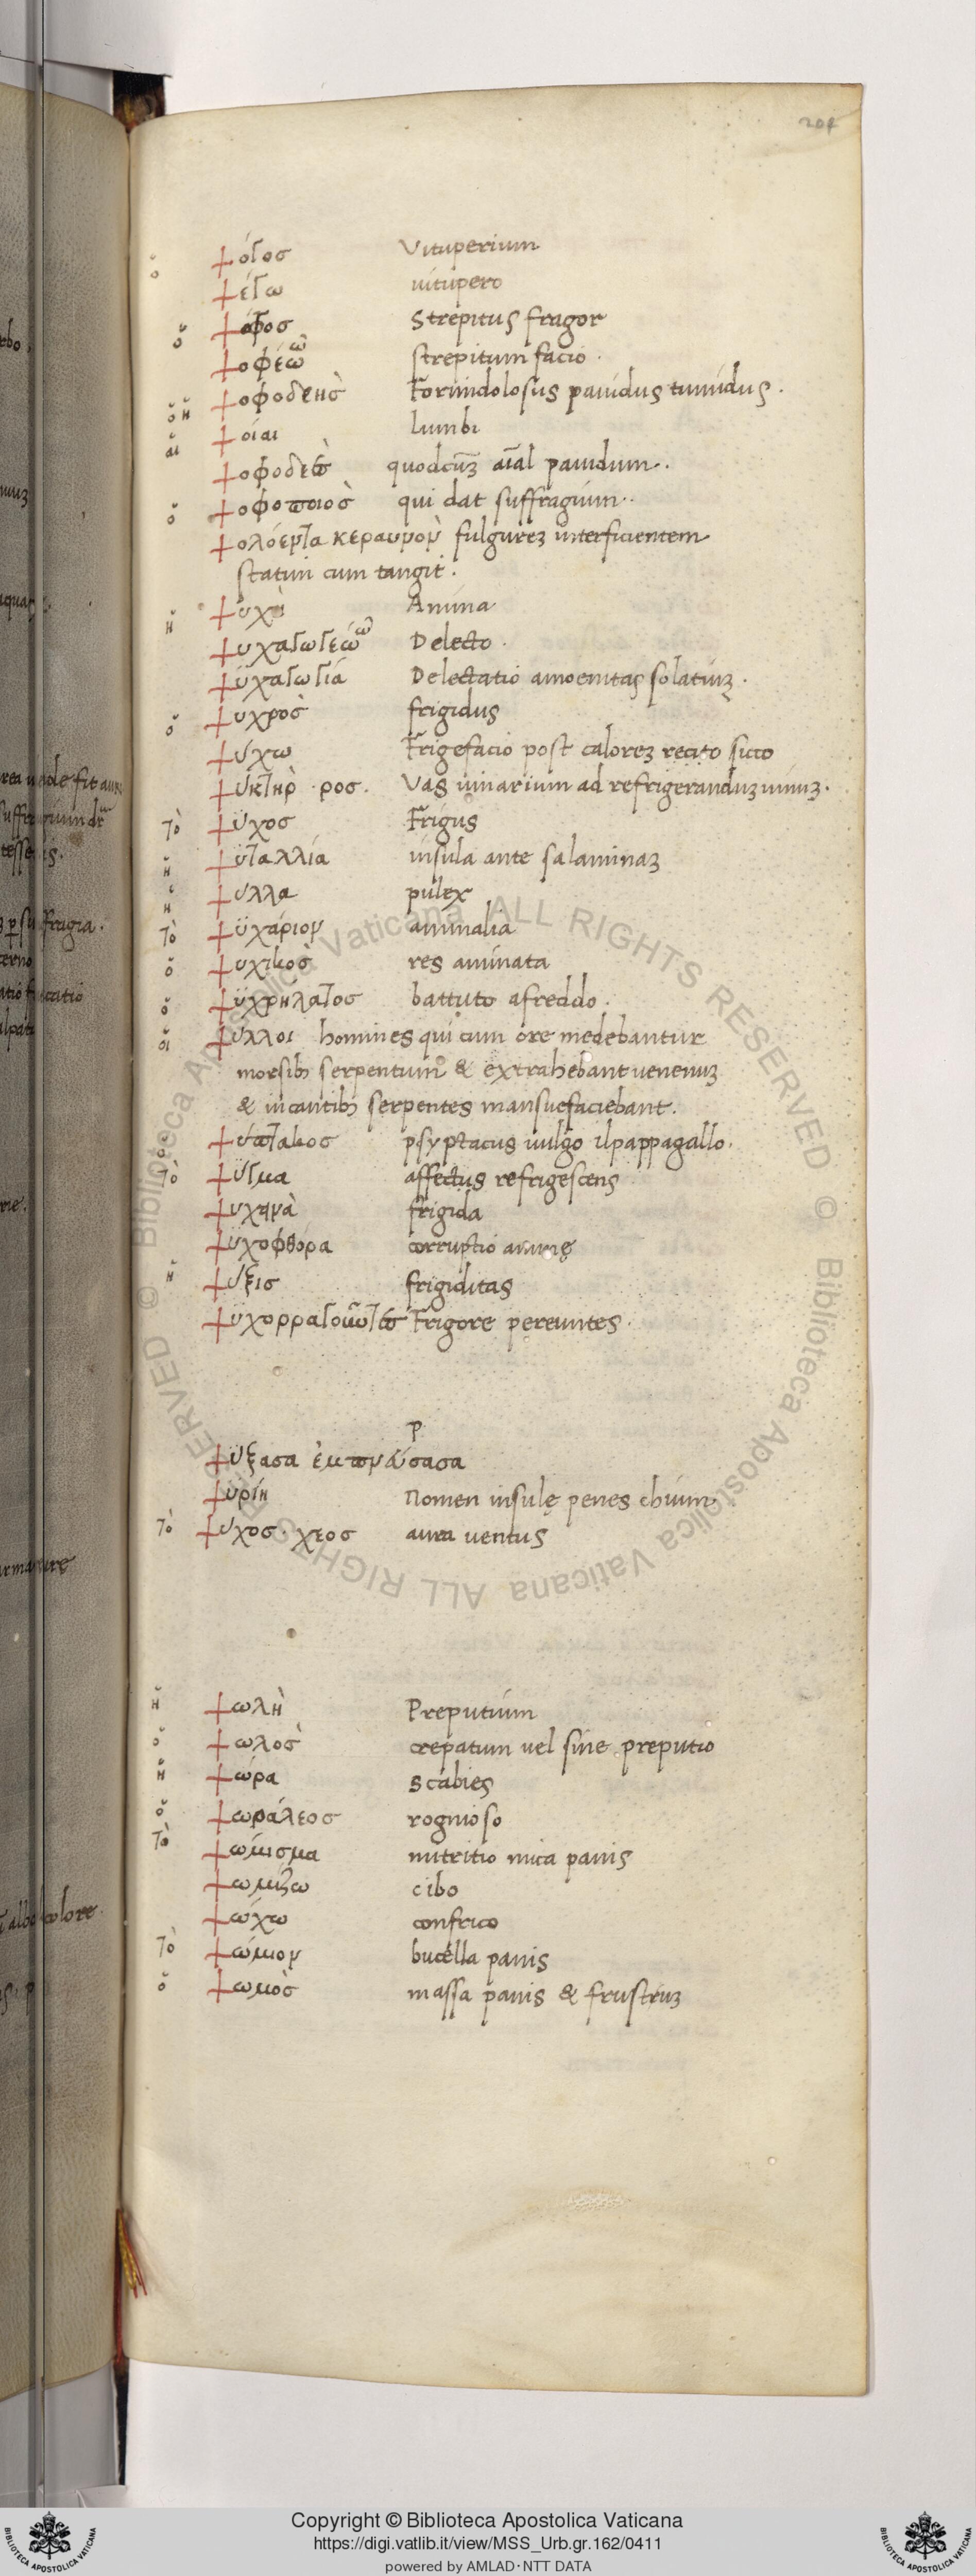 204
ὁ ψόγος Vituperium
ψέγω uitupero
ὁ ψόφος Strepitus fragor
ψοφέω ῶ strepitum facio.
ὁ ἡ ψοφοδεὴς Formidolosus pauidus timidus.
αἱ ψοίαι lumbi
ψοφοδεὲς quodcunqꝫ aı͞al pauidum.
ὁ ψοφοποιὸς qui dat suffragium..
ψολόεντα κεραυνὸν fulgureꝫ interficientem
statim cum tangit.
ἡ ψυχὴ Anima
ψυχαγωγεώ ῶ Delecto.
ψυχαγωγία Delectatio amoenitas solatiuꝫ.
ὁ ψυχρὸς frigidus
ψύχω Frigefacio post caloreꝫ recito sicco
ψυκτὴρ . ρος. Vas uinarium ad refrigeranduꝫ uinuꝫ.
τὸ ψῦχος Frigus
ἡ ψυταλλία insula ante salaminaꝫ
ἡ ψύλλα pulex
τὸ ψυχάριον animalia
ὁ ψυχικὸς res animata
ὁ ψυχρήλατος battuto afreddo.
οἱ ψύλλοι homines qui cum ore medebantur
morsibꝫ serpentum & extrahebant uenenuꝫ
& incantibꝫ serpentes mansuefaciebant.
ὁ ψύπτακος psyptacus uulgo ilpappagallo.
τὸ ψύγμα affectus refrigescens
ψυχηνὰ frigida
ψυχοφθόρα corruptio animę
ἡ ψύξις frigiditas
ψυχορραγοῦντες Frigore pereuntes.
ρ
ψύξασα ἐμπνεύσασα
ψυρίη Nomen insulę penes chium
τὸ ψύχος . χεος aura uentus
ἡ ψωλὴ Preputium
ὁ ψωλὸς crepatum uel sine preputio
ἡ ψώρα Scabies
ὁ ψωράλεος rognioso
τὸ ψώμισμα nutritio mica panis
ψωμίζω cibo
ψώχω confrico
τὸ ψώμιον bucella panis
ὁ ψωμὸς massa panis & frustruꝫ
Copyright © Biblioteca Apostolica Vaticana
https://digi.vatlib.it/view/MSS_Urb.gr.162/0411
powered by AMLAD·NTT DATA